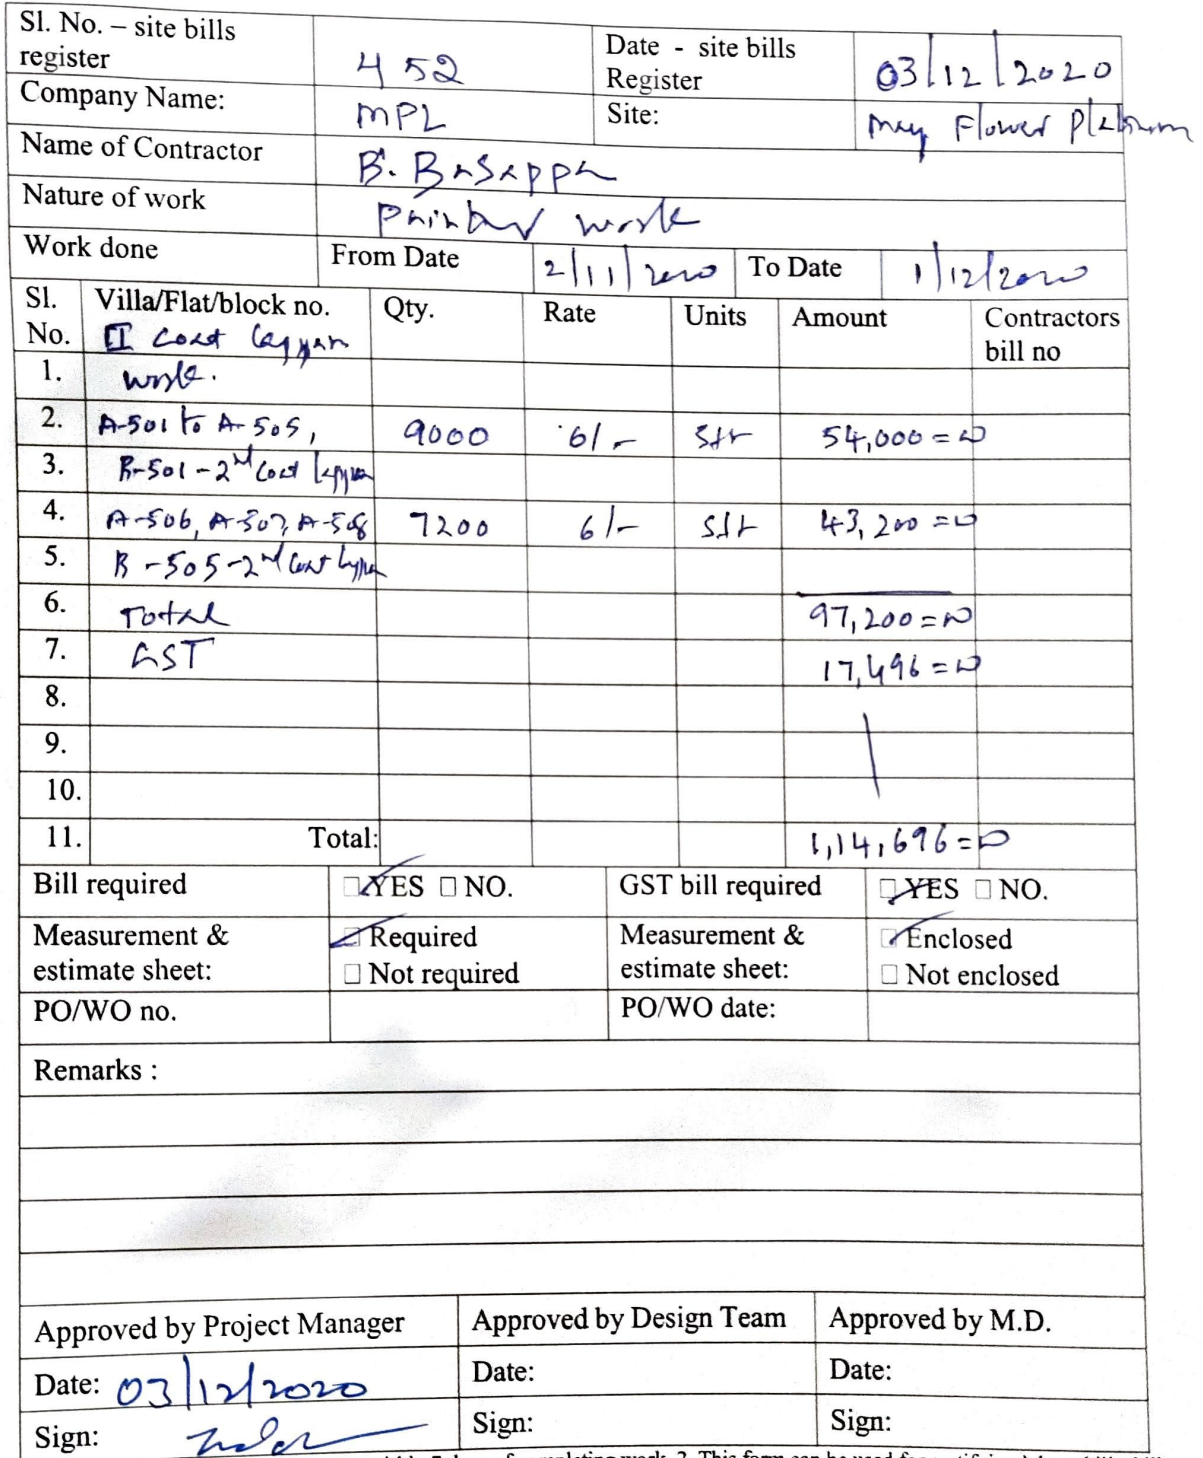 Sl. No. – site bills register 452 Date - site bills Register 03/12/2020
Company Name: MPL Site: May Flower Platinum
Name of Contractor B. Basappa
Nature of work Painter work
Work done From Date 2/11/2020 To Date 1/12/2020
Sl. No. Villa/Flat/block no. Qty. Rate Units Amount Contractors bill no
II Coat lappam
1. work.
2. A-501 to A-505, 9000 6/- Sft 54,000=00
3. B-501-2nd Coat lappam
4. A-506, A-507, A-508 7200 6/- Sft 43,200=00
5. B-505-2nd Coat lappam
6. Total 97,200=00
7. GST 17,496=00
8.
9.
10.
11. Total: 1,14,696=00
Bill required YES NO. GST bill required YES NO.
Measurement & estimate sheet: Required Not required Measurement & estimate sheet: Enclosed Not enclosed
PO/WO no. PO/WO date:
Remarks :
Approved by Project Manager Approved by Design Team Approved by M.D.
Date: 03/12/2020 Date: Date:
Sign: Sign: Sign: